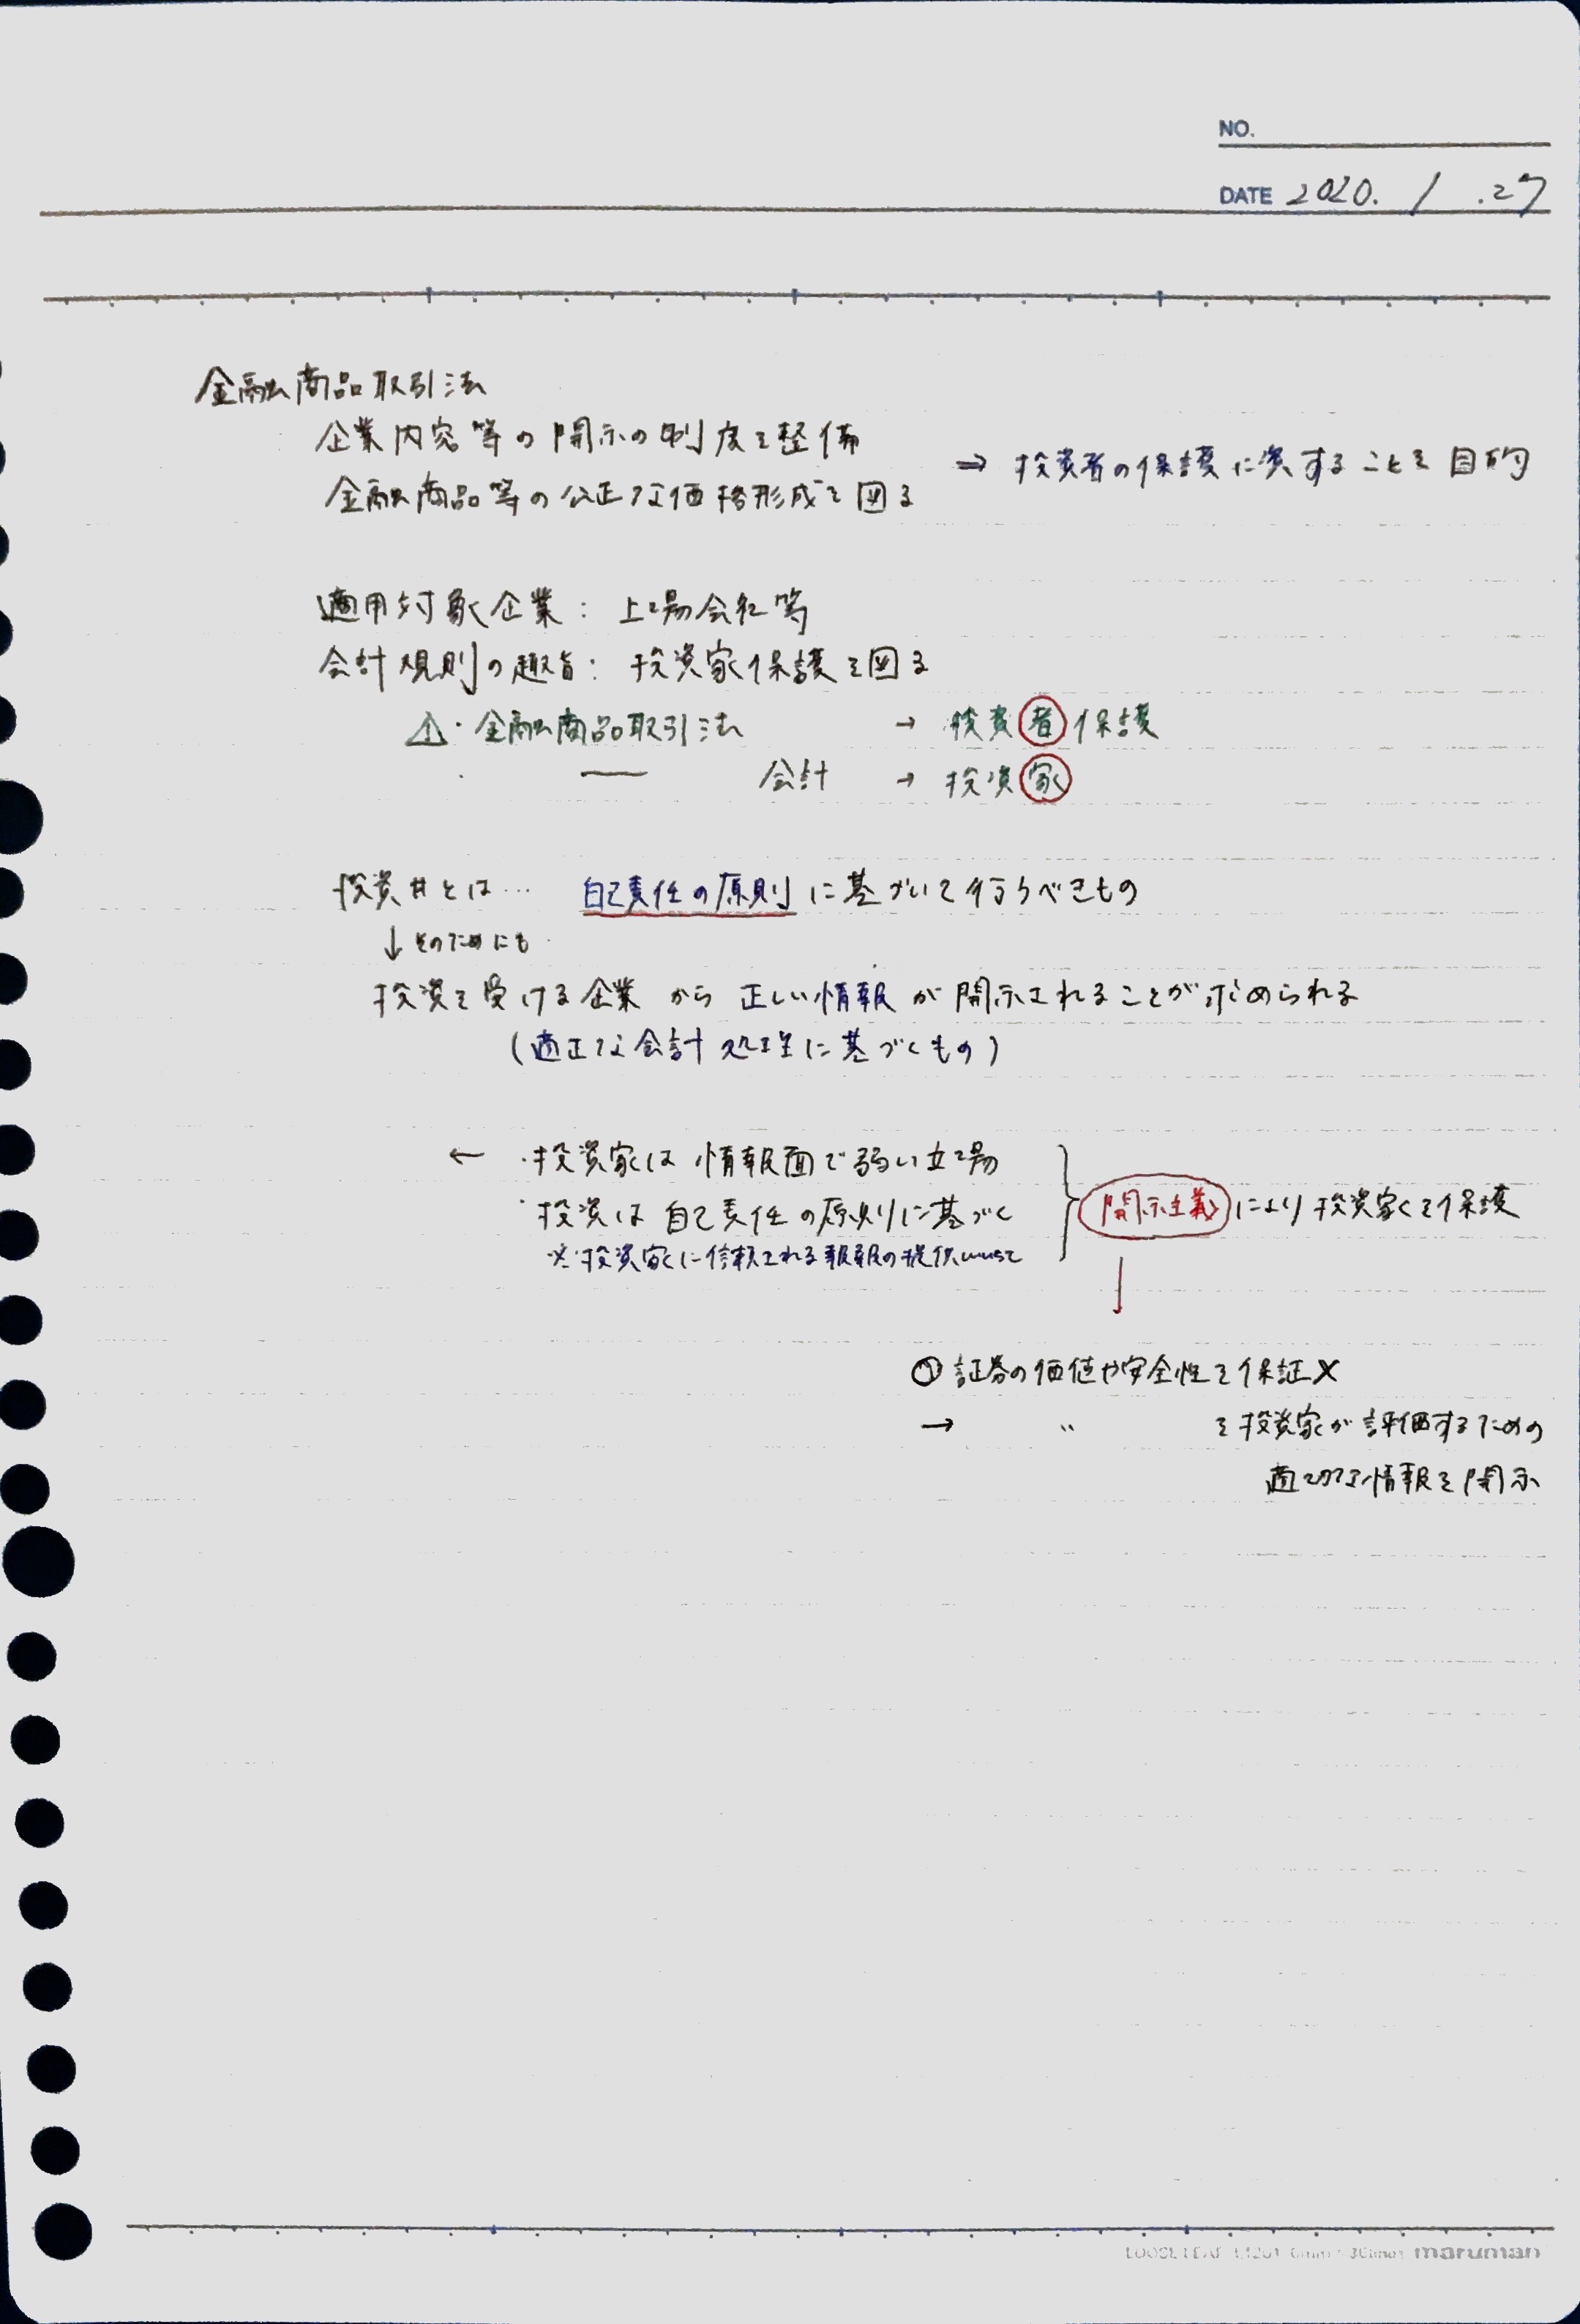 NO.
DATE 2020. 1 .27
金融商品取引法
企業内容等の開示の制度を整備
金融商品等の公正な価格形成を図る
⇒ 投資者の保護に資することを目的
適用対象企業: 上場会社等
会計規則の趣旨: 投資家保護を図る
⚠・金融商品取引法 → 投資者保護
・ ― 会計 → 投資家
投資#とは… 自己責任の原則に基づいて行うべきもの
↓そのためにも
投資を受ける企業 から 正しい情報 が 開示されることが求められる
(適正な会計処理に基づくもの)
← ・投資家は 情報面で弱い立場
・投資は 自己責任の原則に基づく
※投資家に信頼される情報の提供must
開示主義により投資家を保護
証券の価値や安全性を保証✕
→ 〃 を投資家が評価するための
適切な情報を開示
LOOSE LEAF L1201 6mm 36lines maruman